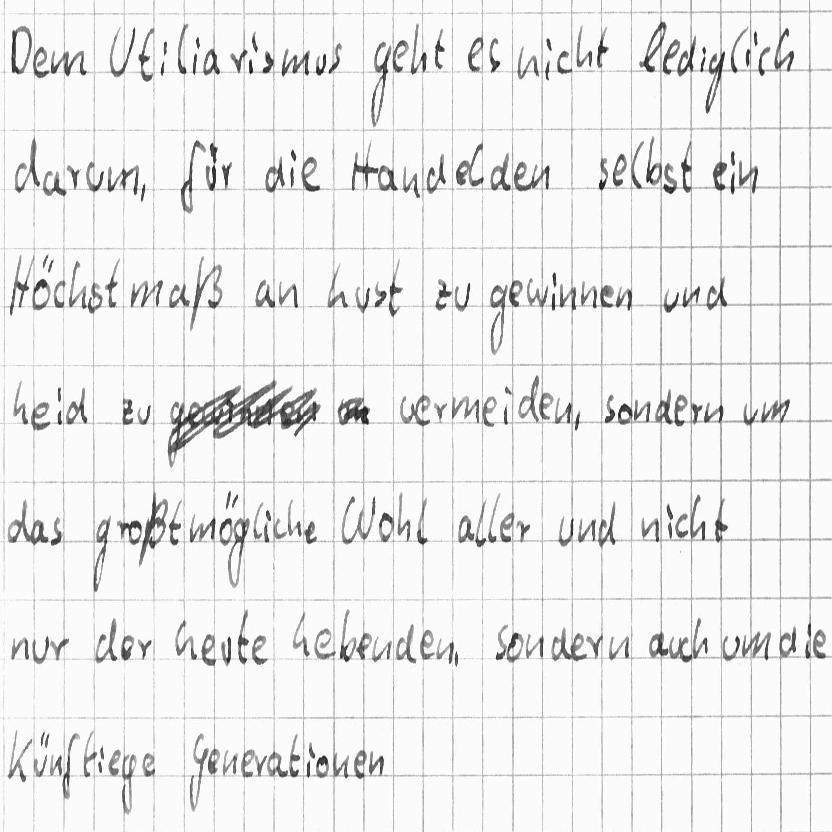 Dem Utiliarismus geht es nicht lediglich
darum, für die Handelden selbst ein
Höchstmaß an Lust zu gewinnen und
Leid zu vermeiden, sondern um
das großtmögliche Wohl aller und nicht
nur der heute Lebenden, sondern auch um die
Künftiege Generationen